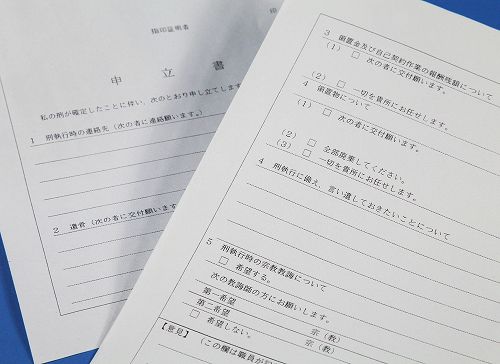 指印証明者
印
申立書
私の刑が確定したことに伴い、次のとおり申し立てします
1 刑執行時の連絡先(次の者に連絡願います。
2 遺言(次の者に交付願います
3 領置金及び自己契約作業の報酬残額について
(1) □ 次の者に交付願います。
(2) □ 一切を貴所にお任せします。
4 領置物について
(1) □ 次の者に交付願います。
(2) □ 全部廃棄してください。
(3) □ 一切を貴所にお任せします。
4 刑執行に備え、言い遺しておきたいことについて
5 刑執行時の宗教教誨について
□ 希望する。
次の教誨師の方にお願いします。
第一希望 宗(教)
第二希望 宗(教)
□ 希望しない。
【意見】
(この欄は職員が記